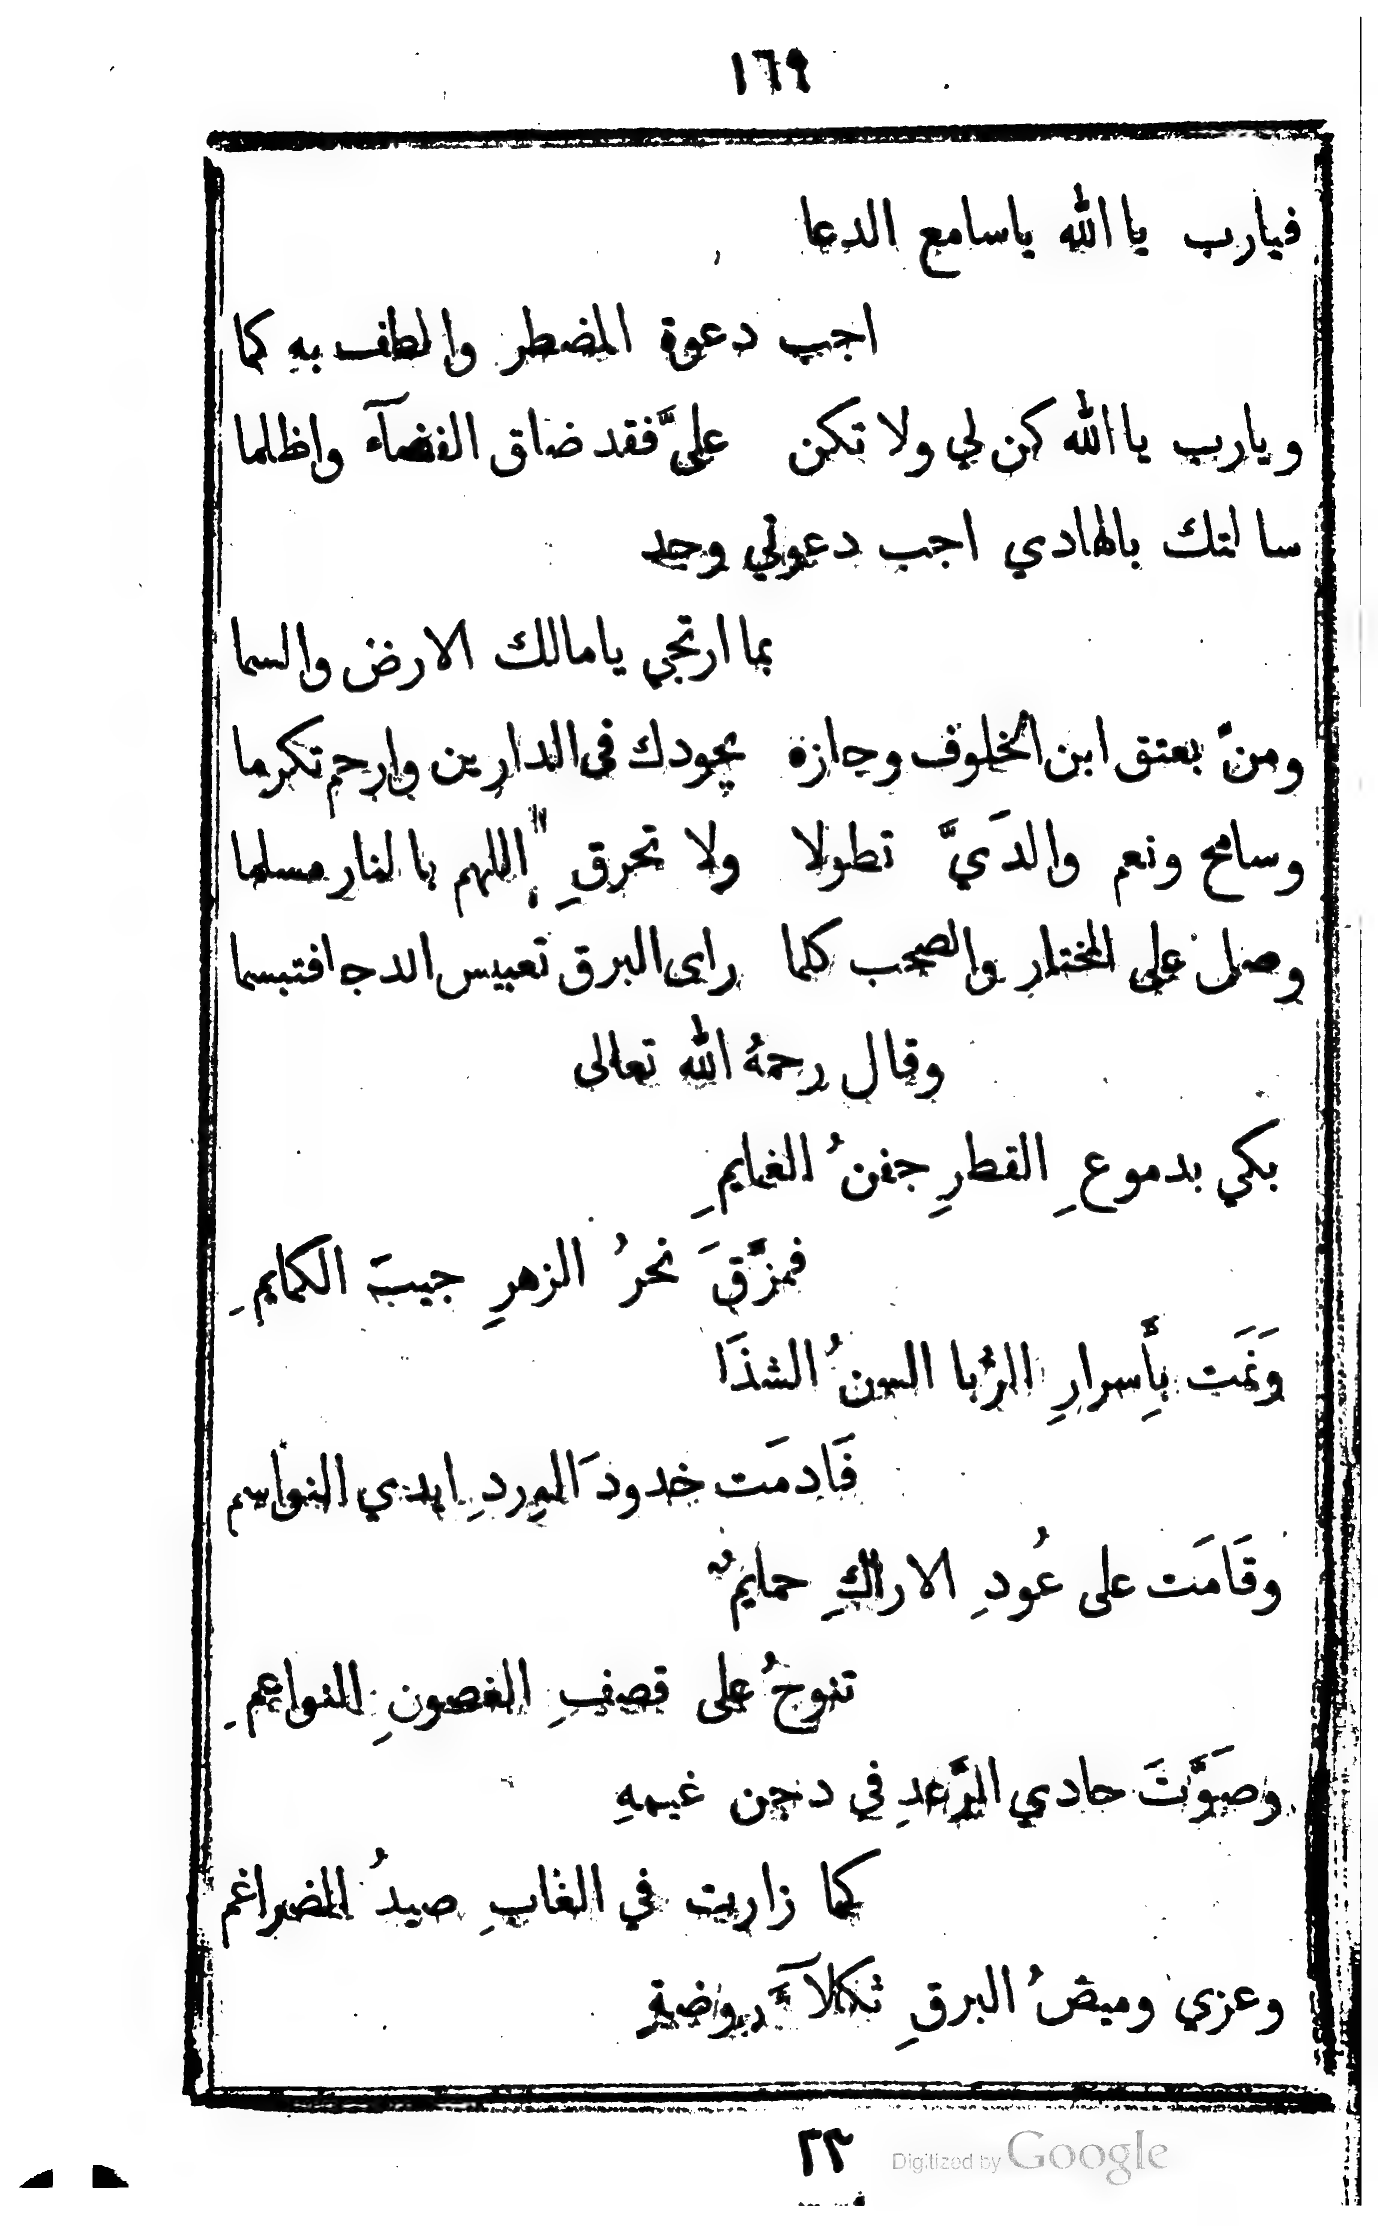 ١٦٩
فيارب يا الله ياسامع الدعا
اجب دعوة المضطر والطف بهِ كما
ويارب يا الله كن لي ولا تكن عليَّ فقد ضاق الفضآء واظلما
سالتك بالهادي اجب دعوتي وجد
بما ارتجي يامالك الارض والسما
ومنّ بعتق ابن الخلوف وجازه بجودك في الدارين وارحم تكرما
وسامح ونعم والدَيَّ تطولا ولا تحرقِ اللهم بالنار مسلما
وصل على المختار والصحب كلما راى البرق تعبيس الدجا فتبسما
وقال رحمهُ الله تعالى
بكي بدموعِ القطرِ جفنُ الغمايمِ
فمزَّقَ نحرُ الزهرِ جيبَ الكمايمِ
وَنَمَت بِأَسرارِ الرُبا السنُ الشذَا
فَادمَت خدودَ الوردِ ايدي النواسم
وقَامَت على عُودِ الاراكِ حمايمٌ
تنوحُ على قصفِ الغصونِ النواعمِ
وصَوَّتَ حادي الرَّعدِ في دجن غيمهِ
كما زارت في الغابِ صيدُ الضراغم
وعزي وميضُ البرقِ ثكلآءَ روضةٍ
٢٢
Digitized by Google